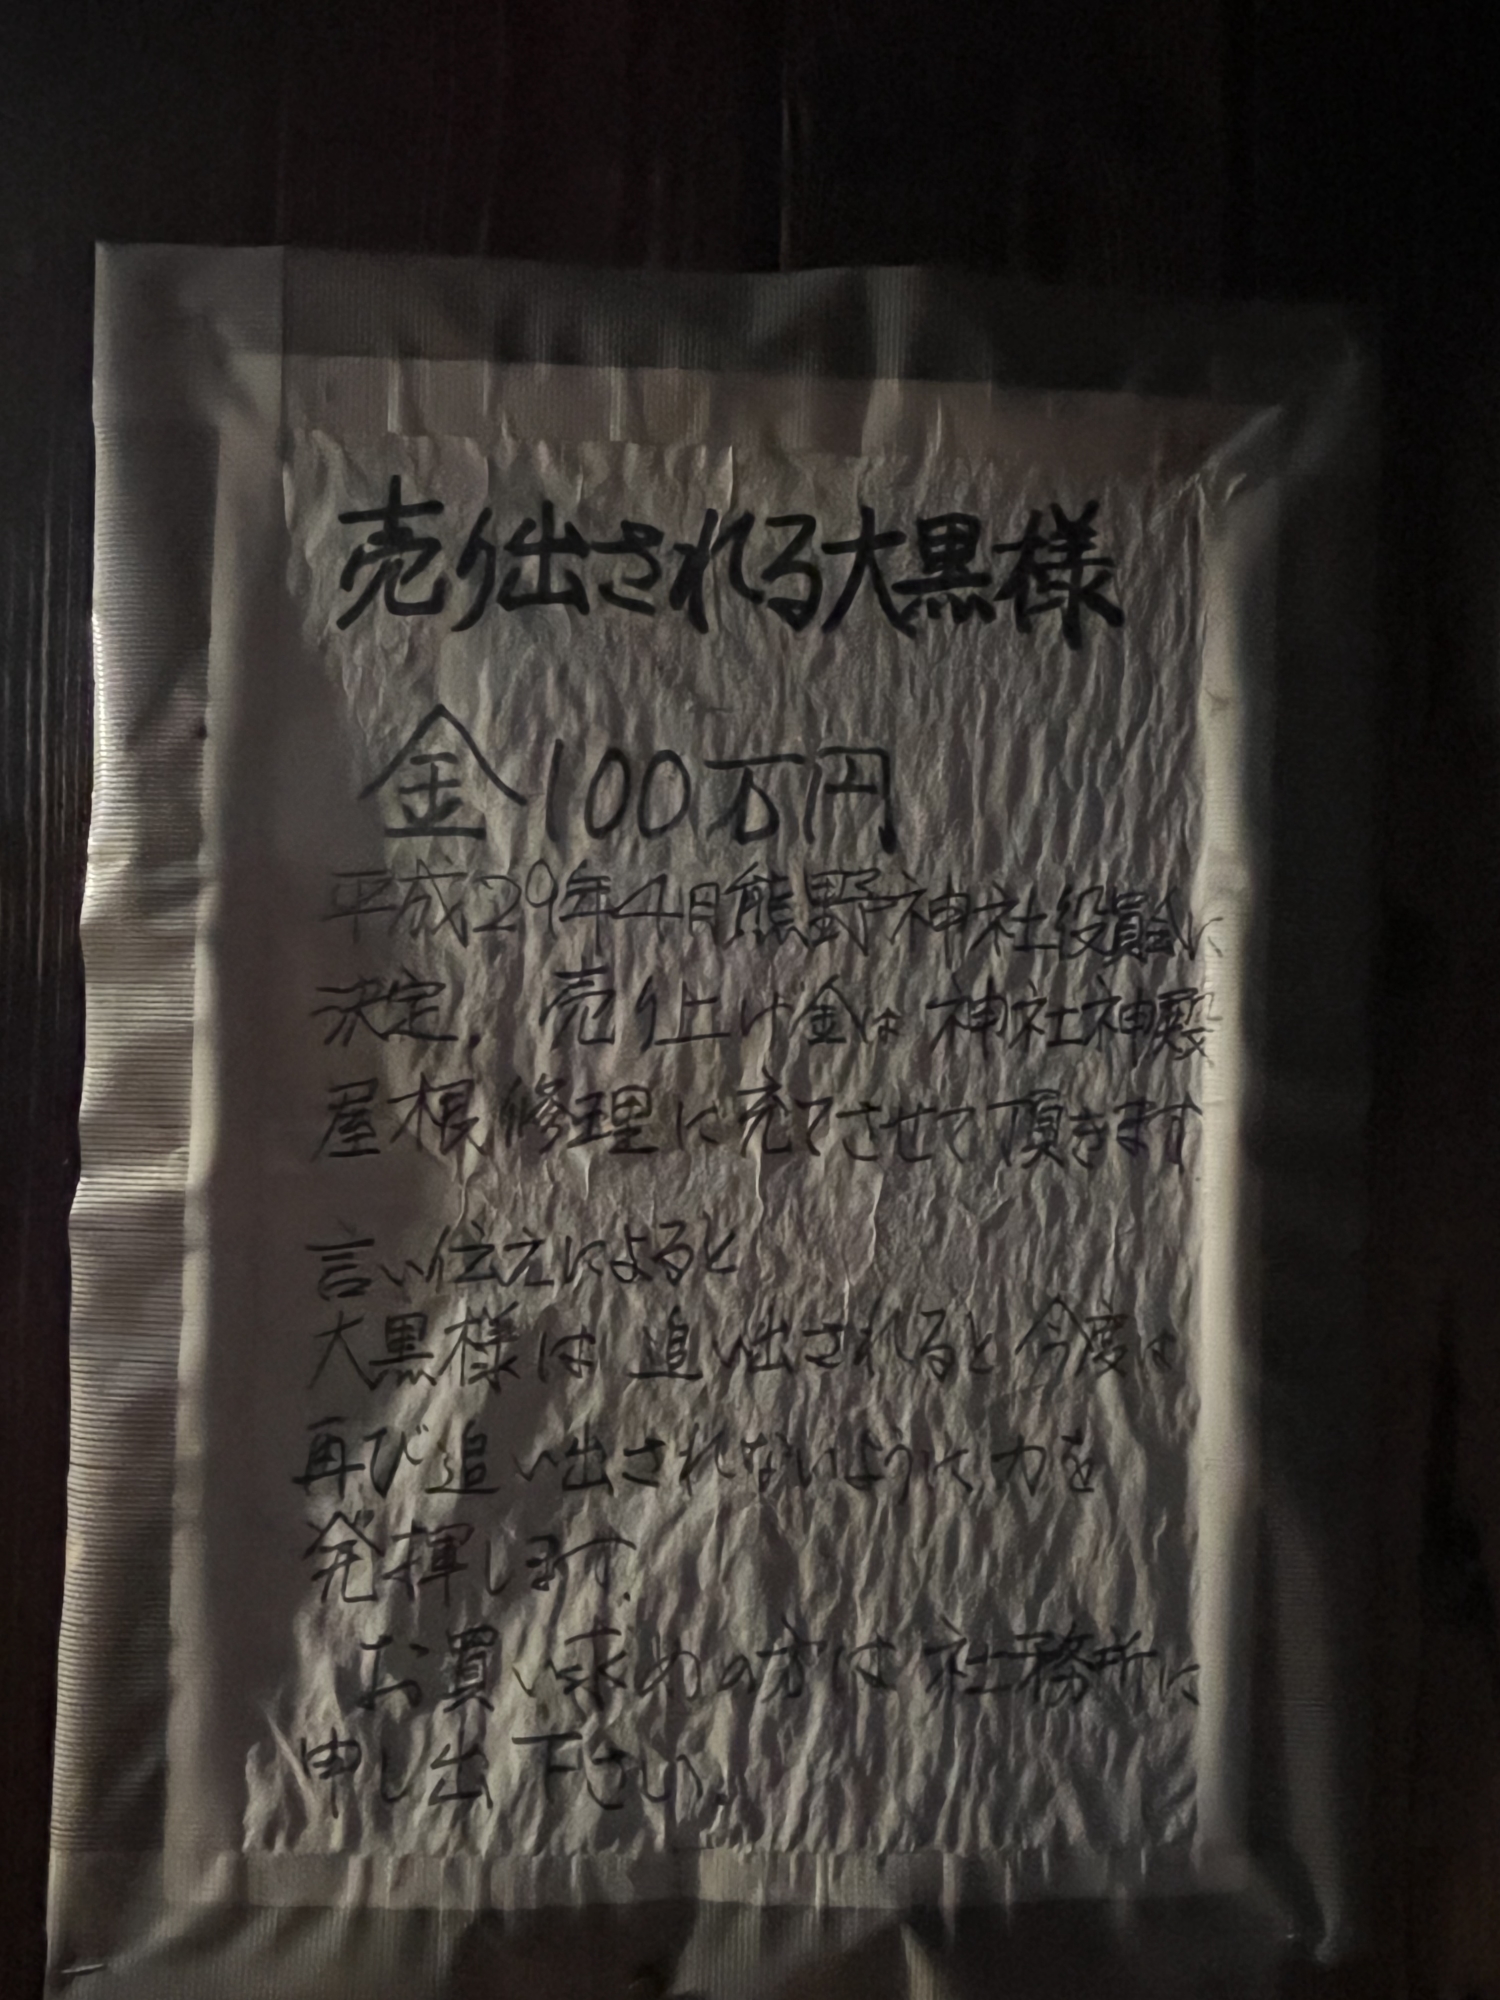 売り出される大黒様
金100万円
平成29年4月熊野神社役員会に
決定.売り上げ金は神社神殿
屋根修理に充てさせて頂きます
言い伝えによると
大黒様は追い出されると今度は
再び追い出されないように力を
発揮します.
お買い求めの方は社務所に
申し出下さい。